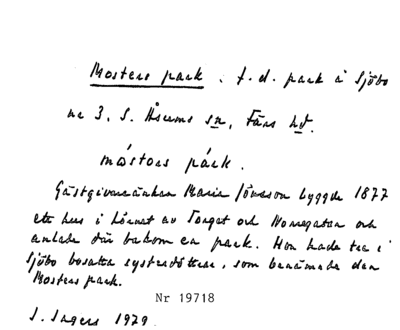 Mosters park. f.d. park i Sjöbo
nr 3, S. Åsums sn, Färs hd.
mástors párk.
Gästgivareänkan Maria Jönsson byggde 1877
ett hus i hörnet av Torget och Norregatan och
anlade där bakom en park. Hon hade tre i
Sjöbo bosatta systerdöttrar, som benämnde den
Mosters park.
Nr 19718
S. Ingers 1979.